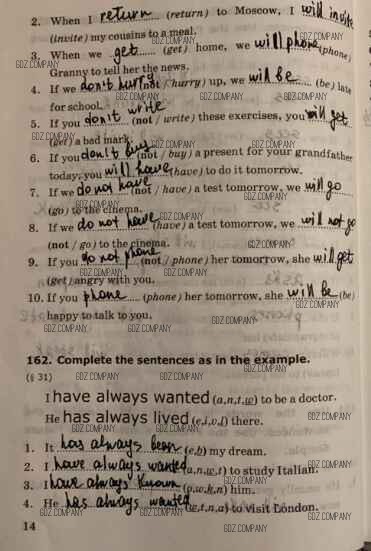 2. When I return (return) to Moscow, I will invite
(invite) my cousins to a meal.
3. When we get (get) home, we will phone (phone)
Granny to tell her the news.
4. If we don't hurry (not / hurry) up, we will be (be) late
for school.
5. If you don't write (not / write) these exercises, you will get
(get) a bad mark.
6. If you don't buy (not / buy) a present for your grandfather
today, you will have (have) to do it tomorrow.
7. If we do not have (not / have) a test tomorrow, we will go
(go) to the cinema.
8. If we do not have (have) a test tomorrow, we will not go
(not / go) to the cinema.
9. If you do not phone (not / phone) her tomorrow, she will get
(get) angry with you.
10. If you phone (phone) her tomorrow, she will be (be)
happy to talk to you.
162. Complete the sentences as in the example.
(§ 31)
I have always wanted (a,n,t,w) to be a doctor.
He has always lived (e,i,v,l) there.
1. It has always been (e,b) my dream.
2. I have always wanted (a,n,w,t) to study Italian.
3. I have always known (o,w,k,n) him.
4. He has always wanted (w,t,n,a) to visit London.
14
GDZ.COMPANY